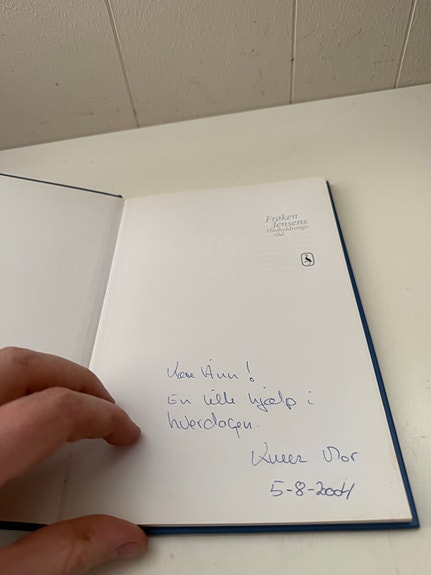 Frøken
Jensens
Husholdnings-
råd
Kære Ann!
En lille hjælp i
hverdagen.
Mor
5-8-2004